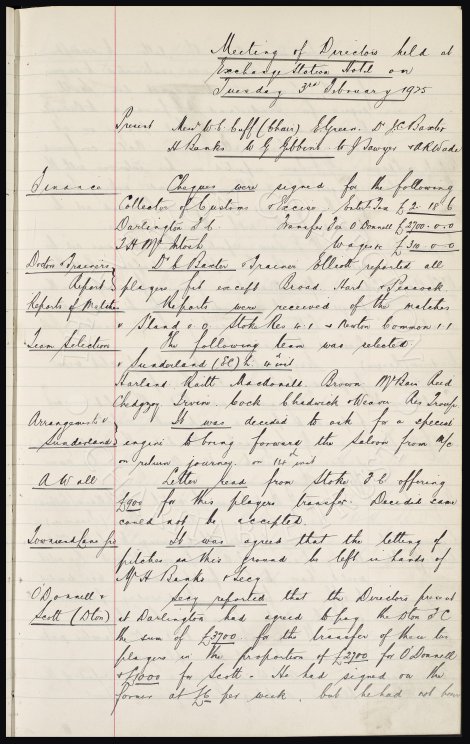 Meeting of Directors held at
Exchange Station Hotel on
Tuesday 3rd February 1925
Present Messrs W. C. Cuff (Chair) E Green. Dr J C Baxter
H Banks W G Gibbins W J Sawyer & A R Wade
Finance Cheques were signed for the following
Collector of Customs & Excise Entert. Tax £2. 18. 6
Darlington F. C. Transfer Fee O'Donnell £2700-0-0
T. H. McIntosh Wages &c £310-0-0
Doctor & Trainers Dr Baxter & Trainer Elliott reported all
Report players fit except Broad Hart & Peacock
Reports of Matches Reports were received of the matches
v Island 0.0 Stoke Res 4.1 & Newton Common 1.1
Team Selection The following team was selected.
v Sunderland (EC) h. 4th inst
Harland Raitt Macdonald Brown McBain Reid
Chedgzoy Irvine Cock Chadwick & Weaver Res Troup
Arrangements v It was decided to ask for a special
Sunderland engine to bring forward the saloon from M/c
on return journey. on 14th inst
A Wall Letter read from Stoke F C offering
£900 for this players transfer. Decided same
could not be accepted.
Townsend Lane Grd It was agreed that the letting of
pitches on this ground be left in hands of
Mr H Banks & Secy
O'Donnell & Secy reported that the Directors present
Scott (Dton) at Darlington had agreed to pay the Dton F C
the sum of £3700. for the transfer of these two
players in the proportion of £2700 for O'Donnell
& £1000 for Scott. He had signed on the
former at £6 per week. but he had not been